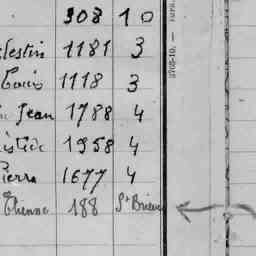 308 10
lestin 1181 3
Louis 1118 3
Jean 1788 4
istide 1958 4
Pierre 1677 4
Etienne 188 St Brieuc